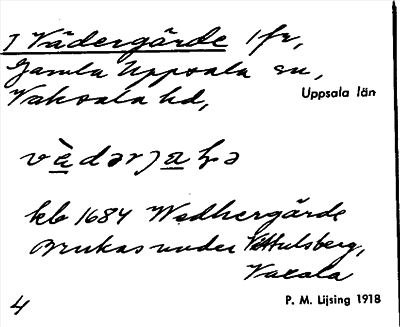 I Vädergärde 1 fr,
Gamla Uppsala sn,
Vaksala hd,
Uppsala län
kb 1684 Wedhergärde
Brukas under Vittulsberg,
Vaxala
4
P. M. Lijsing 1918